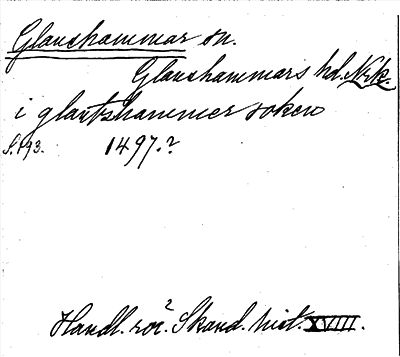 Glanshammar sn.
Glanshammars hd. Nrk.
i glantzhammer soken
S. 193. 1497.?
Handl. rör? Skand. hist. XVIII.